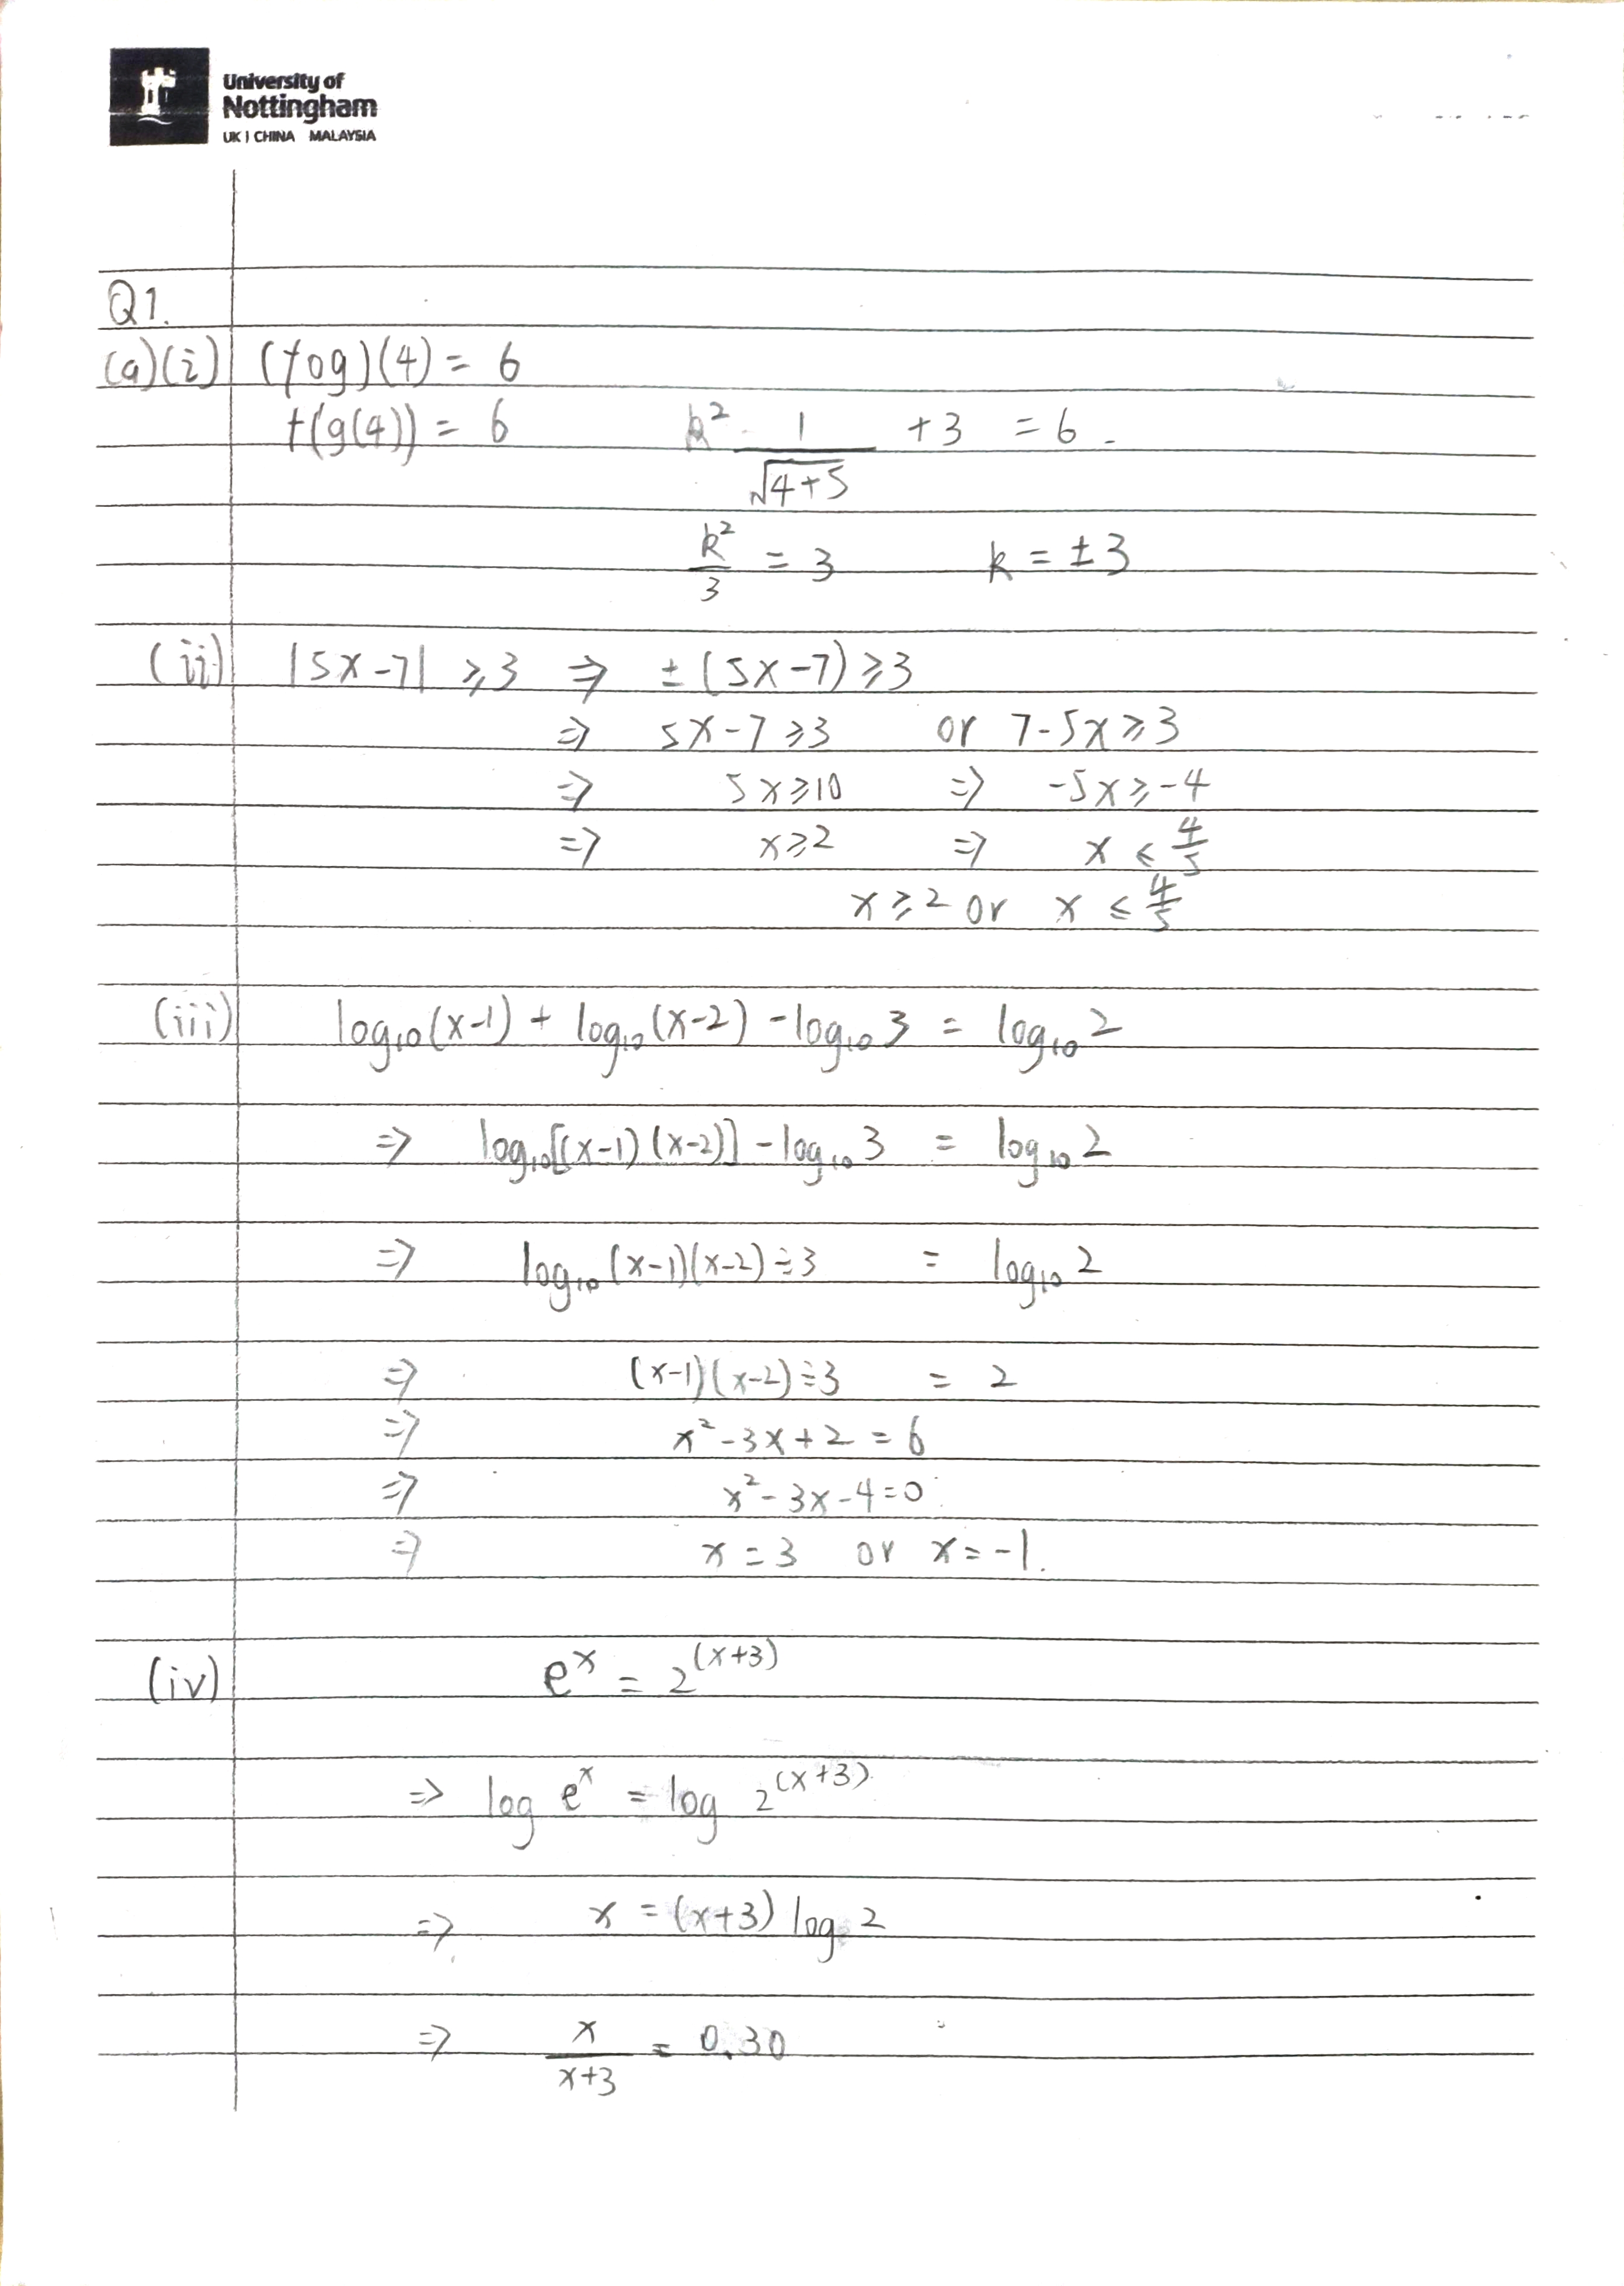 University of
Nottingham
UK | CHINA MALAYSIA
Q1.
(a)(i) (fog)(4) = 6
f(g(4)) = 6 k² · 1/√(4+5) + 3 = 6.
k²/3 = 3 k = ±3
(ii) |5x-7| ≥ 3 ⇒ ±(5x-7) ≥ 3
⇒ 5x-7 ≥ 3 or 7-5x ≥ 3
⇒ 5x ≥ 10 ⇒ -5x ≥ -4
⇒ x ≥ 2 ⇒ x ≤ 4/5
x ≥ 2 or x ≤ 4/5
(iii) log₁₀(x-1) + log₁₀(x-2) - log₁₀3 = log₁₀2
⇒ log₁₀[(x-1)(x-2)] - log₁₀3 = log₁₀2
⇒ log₁₀(x-1)(x-2)÷3 = log₁₀2
⇒ (x-1)(x-2)÷3 = 2
⇒ x²-3x+2 = 6
⇒ x²-3x-4=0
⇒ x = 3 or x = -1.
(iv) eˣ = 2^(x+3)
⇒ log eˣ = log 2^(x+3)
⇒ x = (x+3) log 2
⇒ x/(x+3) = 0.30